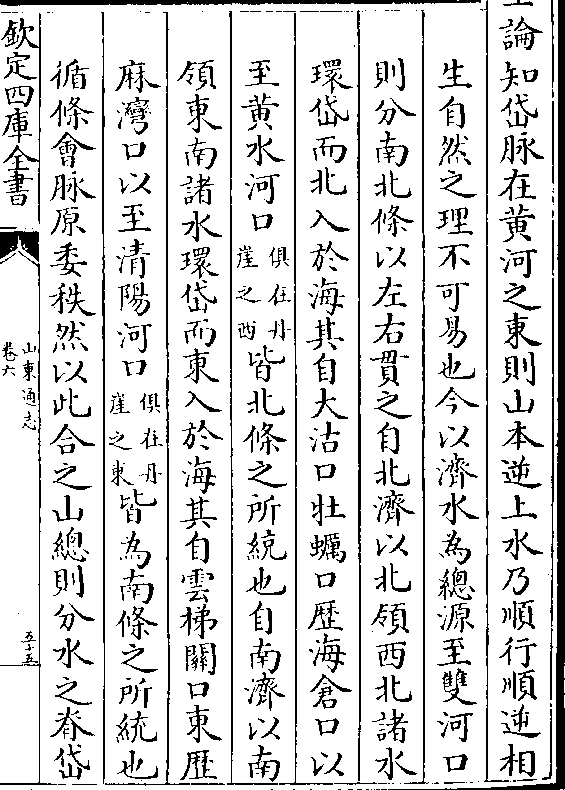 論知岱脉在黄河之東則山本逆上水乃順行順逆相
生自然之理不可易也今以濟水為總源至雙河口
則分南北條以左右貫之自北濟以北領西北諸水
環岱而北入於海其自大沽口牡蠣口歴海倉口以
至黄水河口俱在丹崖之西皆北條之所統也自南濟以南
領東南諸水環岱而東入於海其自雲梯關口東歴
麻灣口以至清陽河口俱在丹崖之東皆為南條之所統也
循條會脉原委秩然以此合之山總則分水之脊岱
欽定四庫全書
山東通志
卷六
五十五